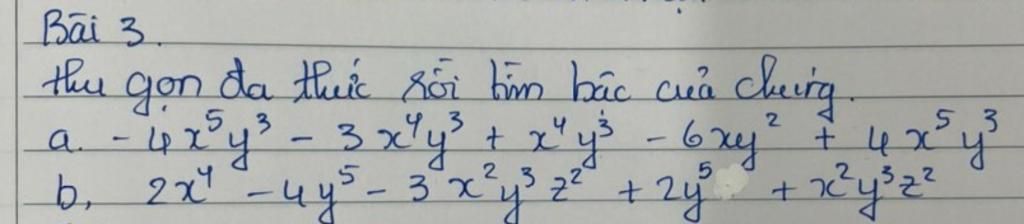 Bài 3.
thu gọn đa thức rồi tìm bậc của chúng.
a. - 4x⁵y³ - 3x⁴y³ + x⁴y³ - 6xy² + 4x⁵y³
b, 2x⁴ - 4y⁵ - 3x²y³z² + 2y⁵ + x²y³z²